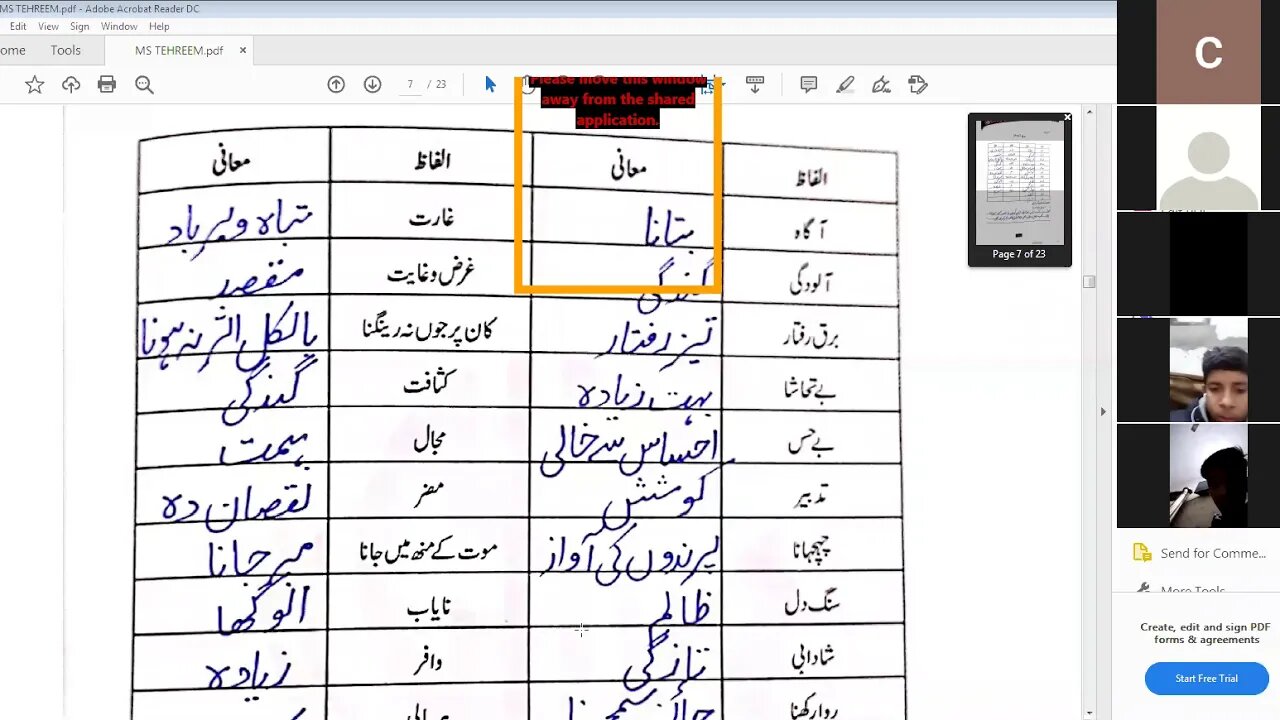 MS TEHREEM.pdf - Adobe Acrobat Reader DC
Edit View Sign Window Help
ome Tools MS TEHREEM.pdf ×
7 / 23
Please move this window
away from the shared
application.
C
الفاظ معانی الفاظ معانی
آگاہ بتانا غارت تباہ و برباد
آلودگی گندگی غرض و غایت مقصد
برق رفتار تیز رفتار کان پر جوں نہ رینگنا بالکل اثر نہ ہونا
بے تحاشا بہت زیادہ کثافت گندگی
بے حس احساس سے خالی مجال ہمت
تدبیر کوشش مضر نقصان دہ
چہچہانا پرندوں کی آواز موت کے منھ میں جانا مر جانا
سنگ دل ظالم نایاب انوکھا
شادابی تازگی وافر زیادہ
روا رکھنا
Page 7 of 23
Send for Comme...
More Tools
Create, edit and sign PDF
forms & agreements
Start Free Trial